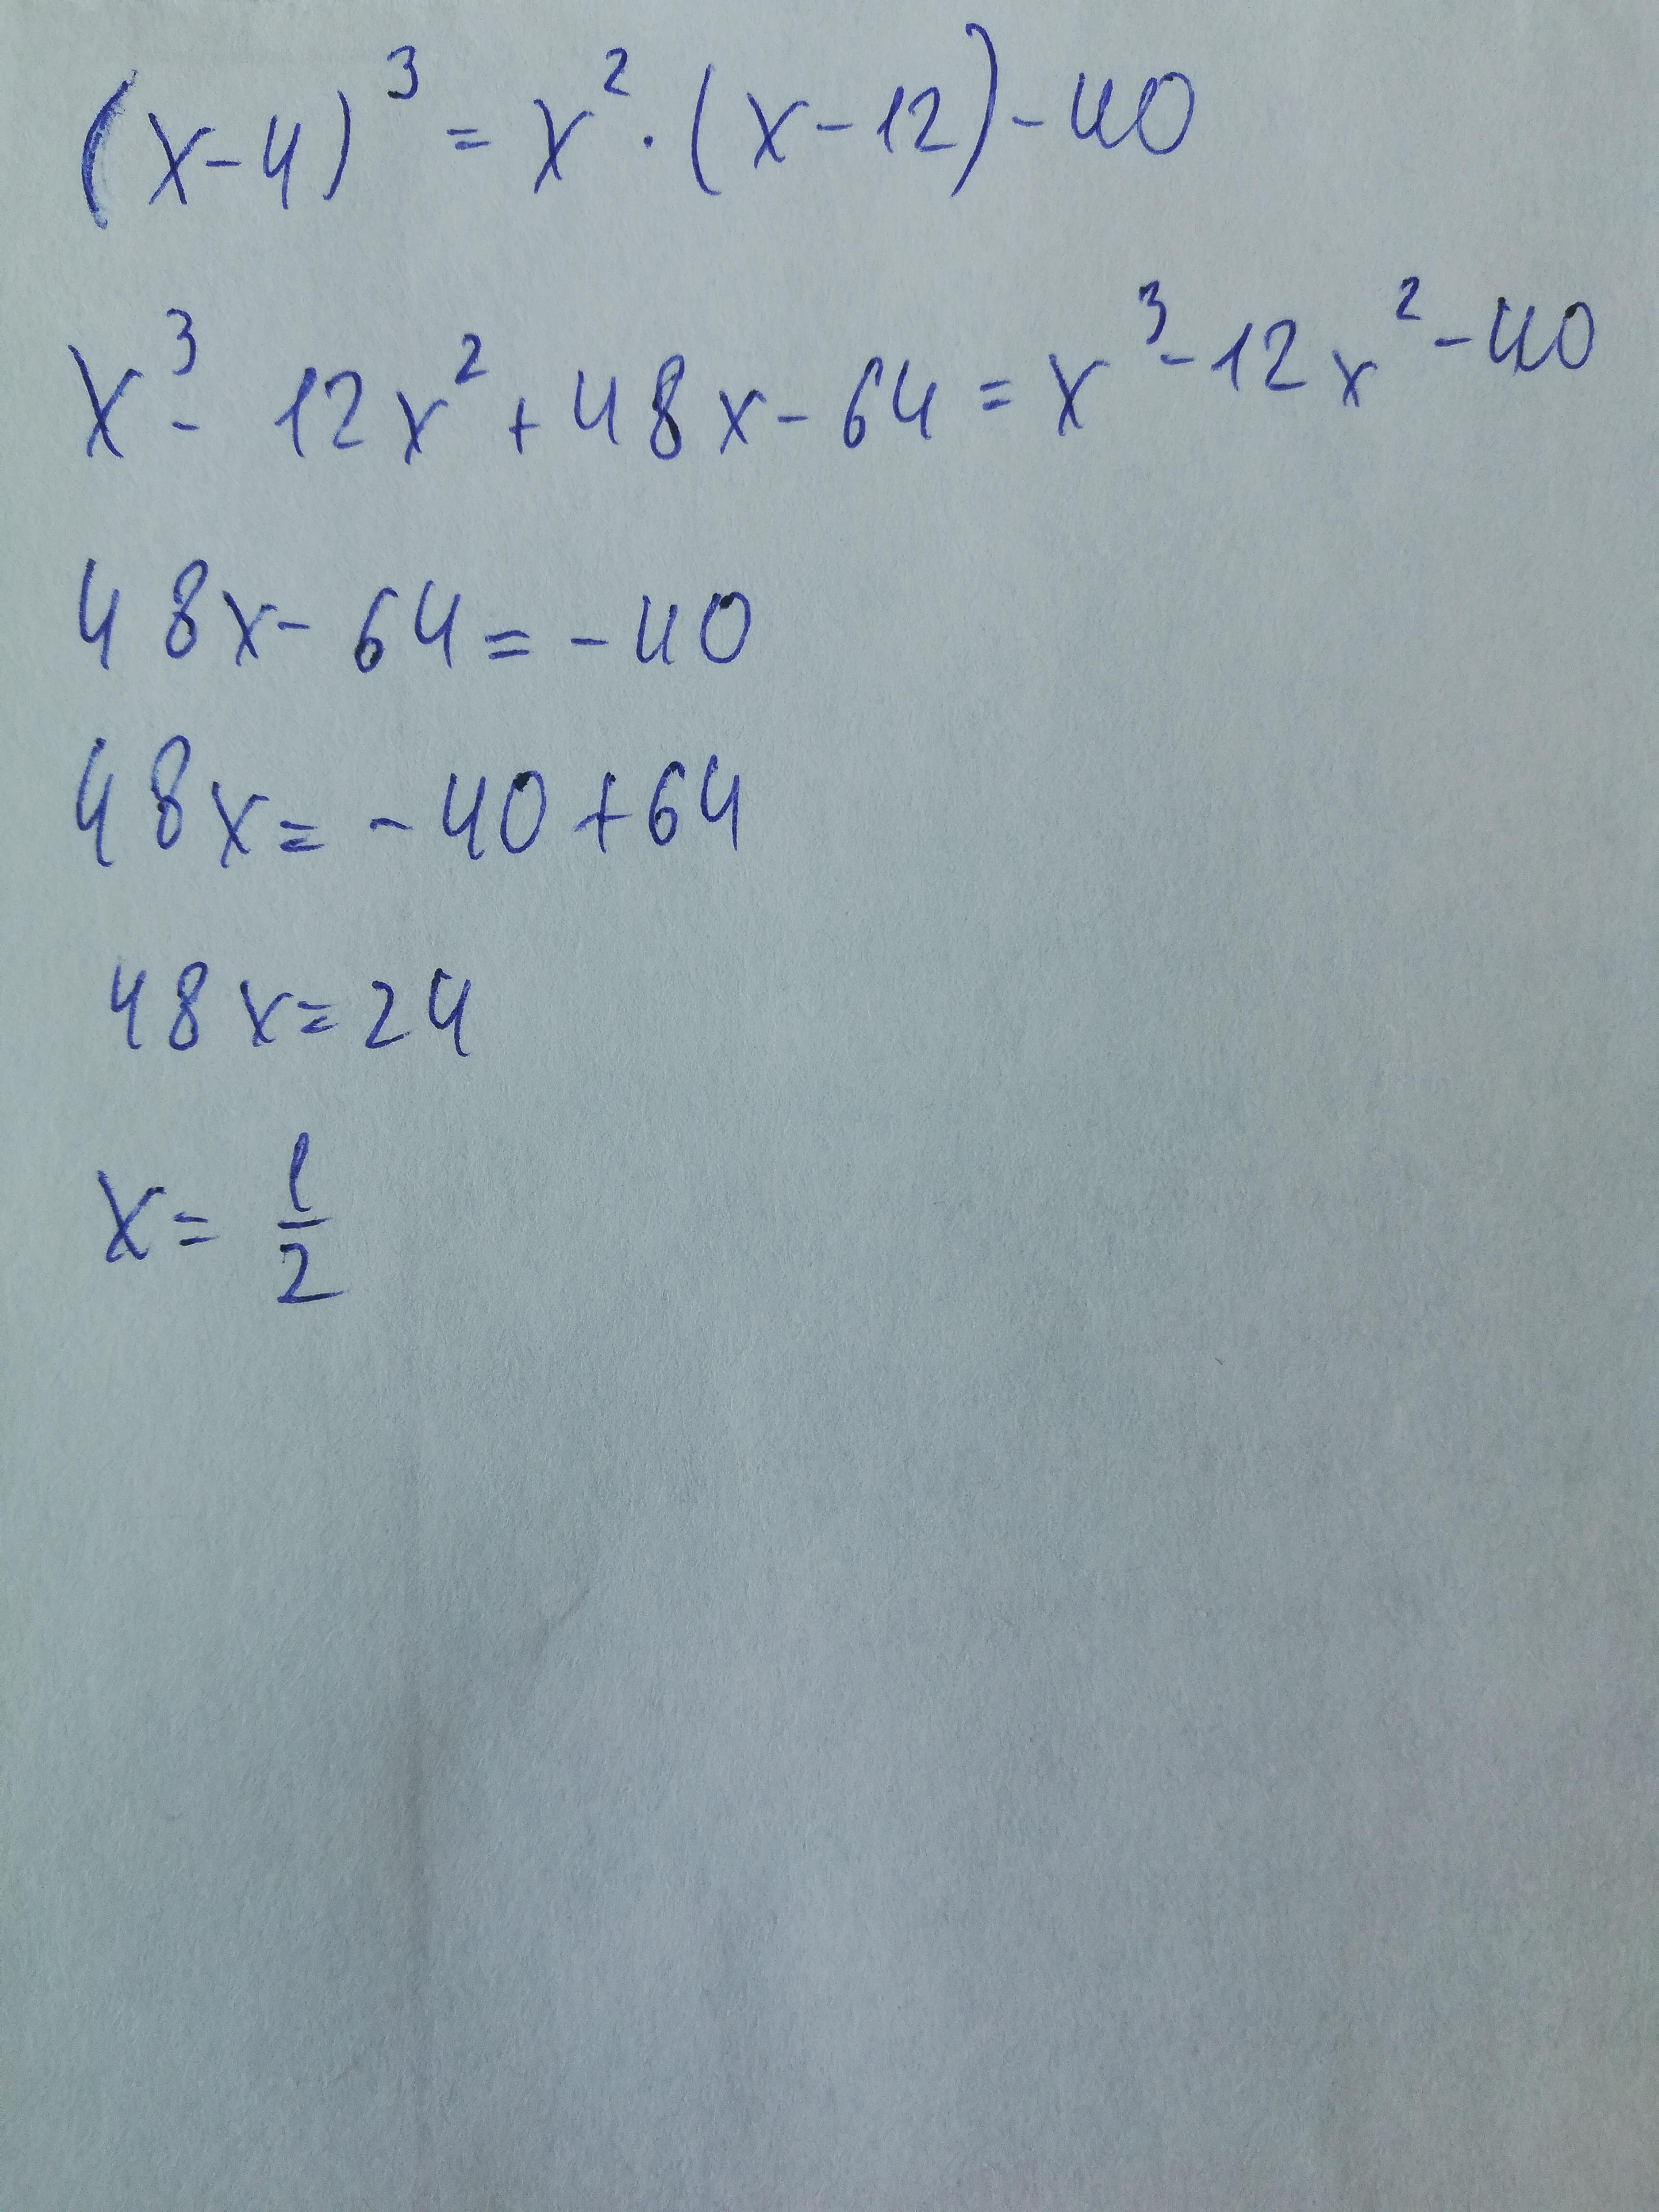 (x-4)³ = x² · (x-12) - 40
x³ - 12x² + 48x - 64 = x³ - 12x² - 40
48x - 64 = -40
48x = -40 + 64
48x = 24
x = 1/2